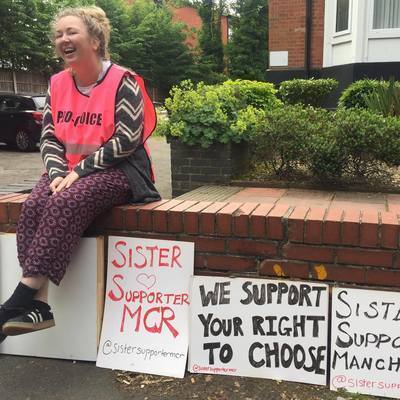 PRO-CHOICE
SISTER
SUPPORTER
MCR
@sistersupportermcr
WE SUPPORT
YOUR RIGHT
TO CHOOSE
@sistersupportermcr
SISTE
SUPPO
MANCH
@sistersuppor